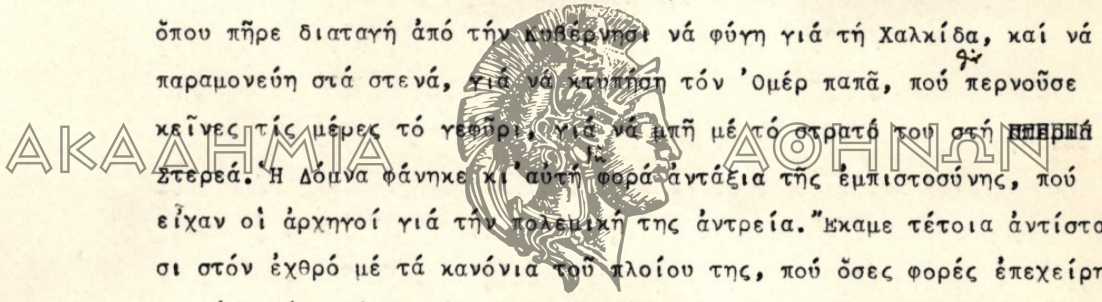 ὅπου πῆρε διαταγή ἀπό τήν Κυβέρνησι νά φύγη γιά τή Χαλκίδα, καί νά
παραμονεύη στά στενά, γιά νά κτυπήση τόν Ὀμέρ παπᾶ, πού περνοῦσε
κεῖνες τίς μέρες τό γεφῦρι, γιά νά μπῆ μέ τό στρατό του στή
ΑΚΑΔΗΜΙΑ ΑΘΗΝΩΝ
Στερεά. Ἡ Δόμνα φάνηκε κι αὐτή φορά ἀντάξια τῆς ἐμπιστοσύνης, πού
εἶχαν οἱ ἀρχηγοί γιά τήν πολεμική της ἀντρεία. Ἔκαμε τέτοια ἀντίστα
σι στόν ἐχθρό μέ τά κανόνια τοῦ πλοίου της, πού ὅσες φορές ἐπεχείρη